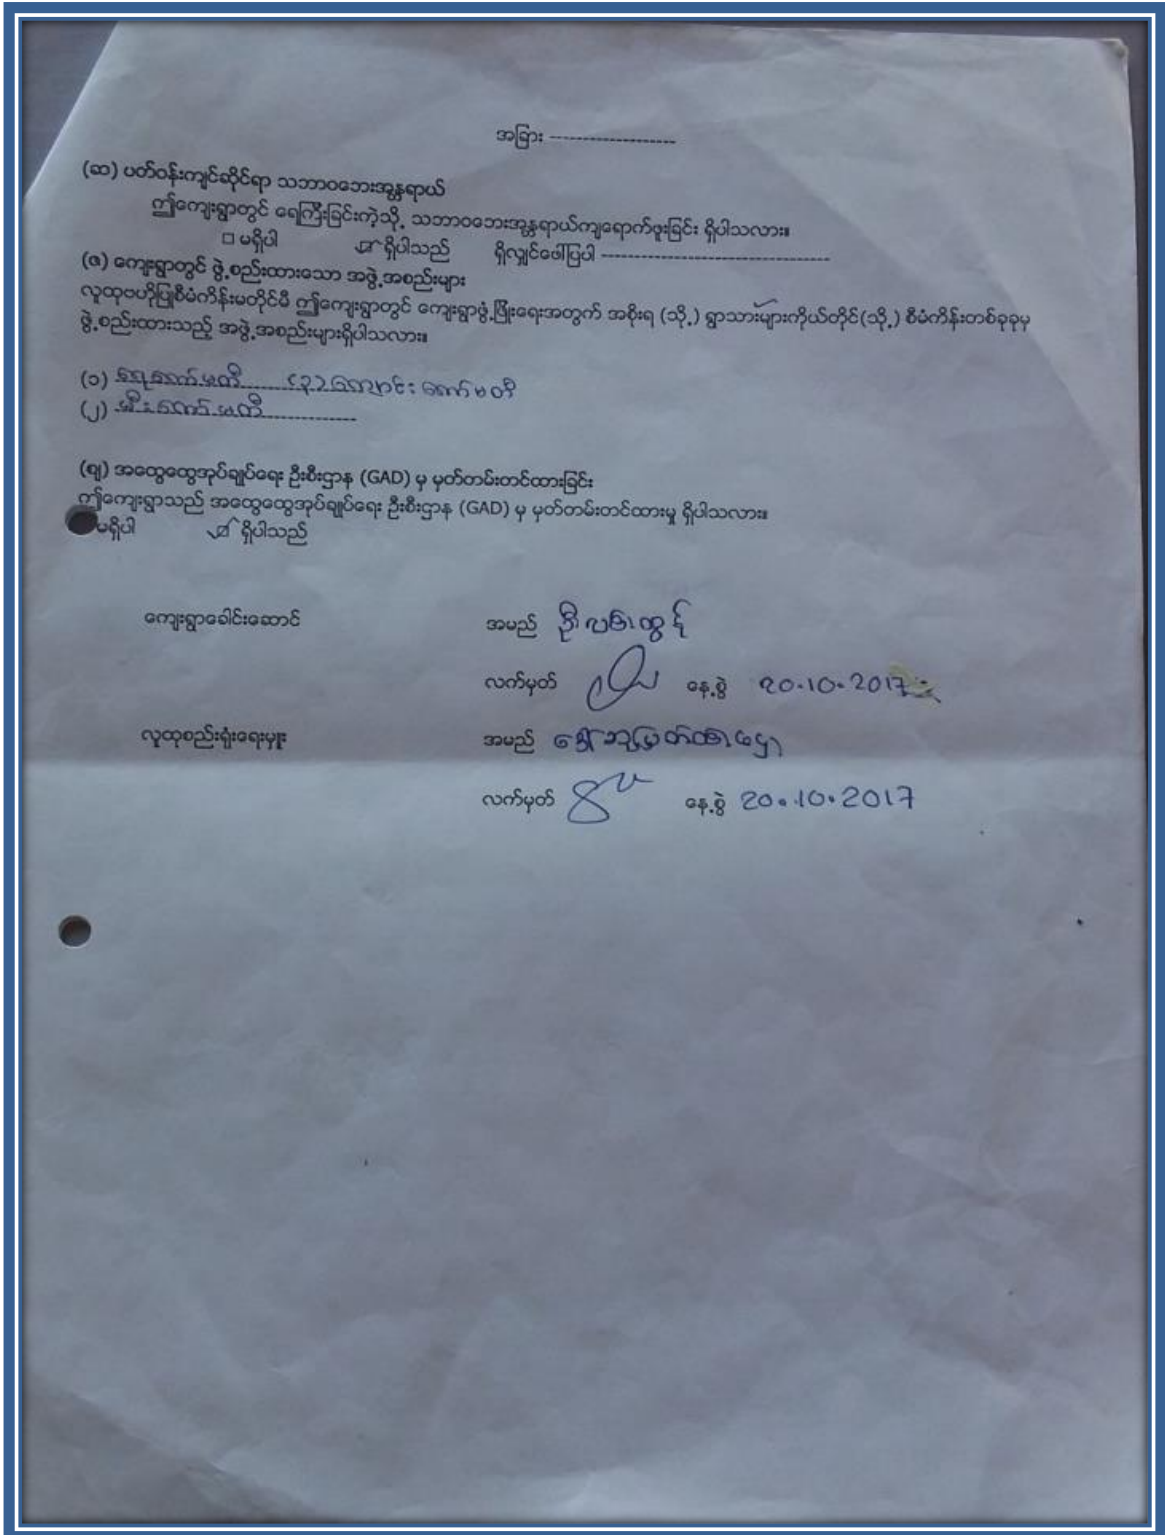 အခြား -------------------
(ဆ) ပတ်ဝန်းကျင်ဆိုင်ရာ သဘာဝဘေးအန္တရာယ်
ဤကျေးရွာတွင် ရေကြီးခြင်းကဲ့သို့ သဘာဝဘေးအန္တရာယ်ကျရောက်ဖူးခြင်း ရှိပါသလား။
□ မရှိပါ ☑ ရှိပါသည် ရှိလျှင်ဖေါ်ပြပါ ----------------------------------
(ဇ) ကျေးရွာတွင် ဖွဲ့စည်းထားသော အဖွဲ့အစည်းများ
လူထုဗဟိုပြုစီမံကိန်းမတိုင်မီ ဤကျေးရွာတွင် ကျေးရွာဖွံ့ဖြိုးရေးအတွက် အစိုးရ (သို့) ရွာသားများကိုယ်တိုင်(သို့) စီမံကိန်းတစ်ခုခုမှ
ဖွဲ့စည်းထားသည့် အဖွဲ့အစည်းများရှိပါသလား။
(၁) ရေကော်မတီ (၃) ကျောင်းကော်မတီ
(၂) မီးကော်မတီ
(ဈ) အထွေထွေအုပ်ချုပ်ရေး ဦးစီးဌာန (GAD) မှ မှတ်တမ်းတင်ထားခြင်း
ဤကျေးရွာသည် အထွေထွေအုပ်ချုပ်ရေး ဦးစီးဌာန (GAD) မှ မှတ်တမ်းတင်ထားမှု ရှိပါသလား။
မရှိပါ ☑ ရှိပါသည်
ကျေးရွာခေါင်းဆောင် အမည် ဦး
လက်မှတ် နေ့စွဲ 20.10.2017
လူထုစည်းရုံးရေးမှူး အမည်
လက်မှတ် နေ့စွဲ 20.10.2017